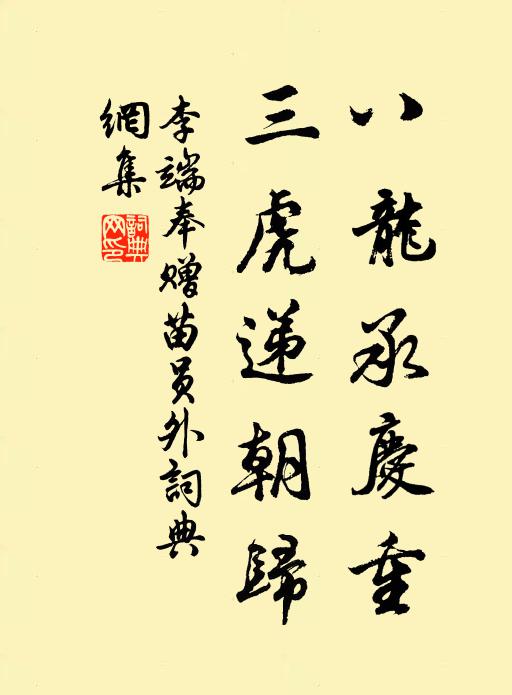 八龍承慶重
三虎遞朝歸
李端奉贈苗員外詞典
網集
詞典網印